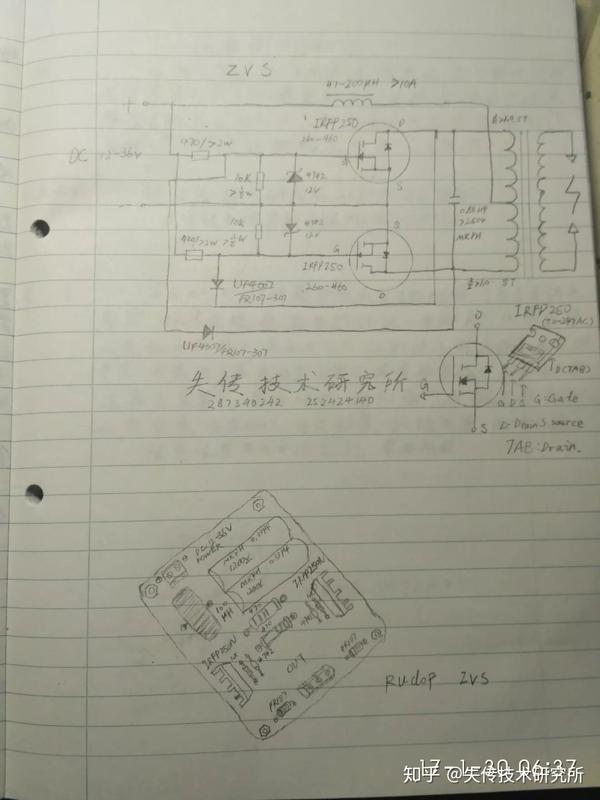 ZVS
47-200μH >10A
IRFP250
260-460
D
+
DC 12-36V
470/>2W
10K
>½W
4742
12V
S
-
10K
>½W
4742
12V
S
>250V
MKPH
470/>2W
G
IRFP250
260-460
D
UF4007
FR107-307
UF4007/FR107-307
IRFP250
(TO-247AC)
D(TAB)
D
G
S
G D S
G:Gate
D:Drain S:source
TAB:Drain.
失传技术研究所
287390242 252424140
DC12-36V
POWER
MKPH 0.47μ
1200DC
MKPH 0.47μ
100
μH
IRFP250N
470
470
IRFP250N
OUT
FR107
FR107
Rudop ZVS
17-1-30 06:37
知乎 @失传技术研究所